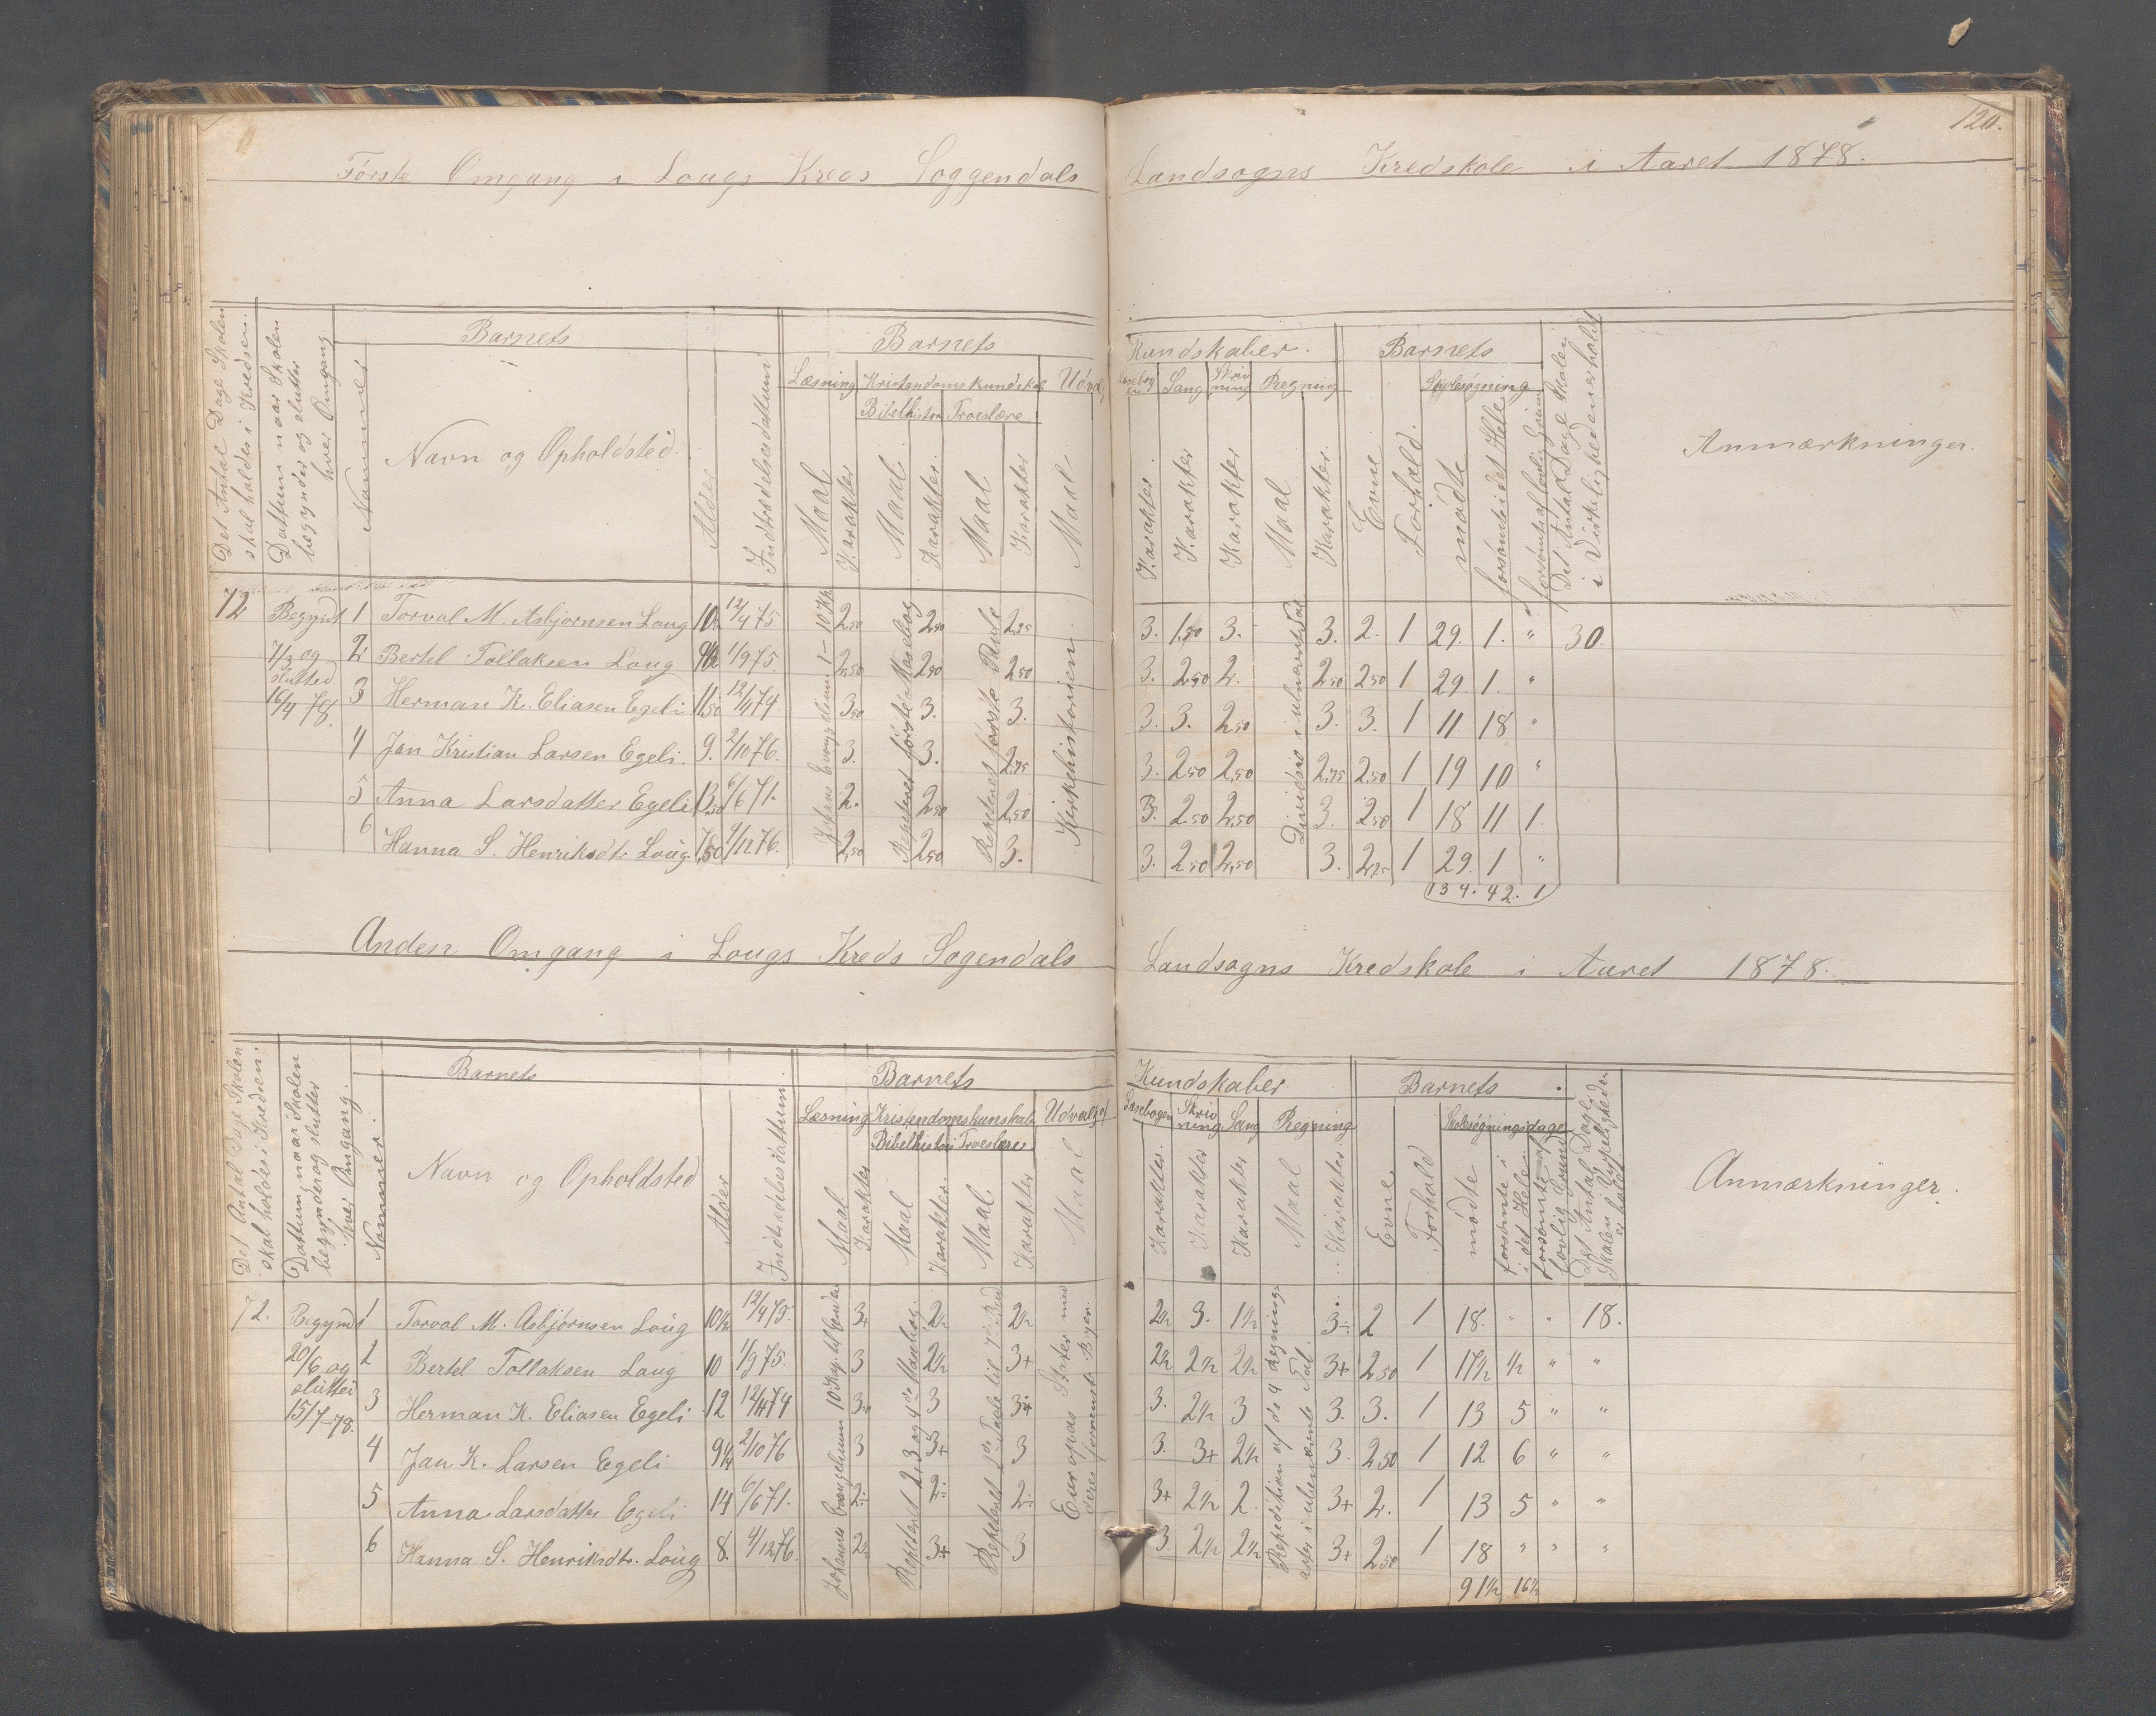 120.
Første Omgang i Lougs Kreds Soggendals Landsogns Kredskole i Aaret 1878.
Det Antal Dage Skolen skal holdes i Kredsen.
Dattum naar Skolen begynder og slutter hver Omgang
Nommer
Barnets
Navn og Opholdsted.
Alder
Indtrædelsesdattum
Barnets Kundskaber.
Læsning Kristendomskundskab Udvalg
Bibelhistori Troeslære
Maal Karakter Maal Karakter. Maal Karakter Maal
Læsebogen Sang Skrivning Regning
Karakter Karakter Karakter Maal Karakter.
Barnets
Evne Forhold. Skolesøgning
mødte forsømte i det Hele forsømte af lovlig Grund
Det Antal Dage Skolen i Virkeligheden er holdt
Anmærkninger.
72 Begyndt 7/3 og slutted 16/4 78.
1 Torval M. Asbjørnsen Loug 10 1/2 12/4 75. 2,50 2,50 2,75 3. 1,50 3. 3. 2. 1 29. 1. " 30.
2 Bertel Tollaksen Loug 9 1/2 1/9 75. 2,50 2,50 2,50 3. 2,50 2. 2,50 2,50 1 29. 1. "
3 Herman K. Eliasen Egeli 11,50 12/11 74 3,50 3. 3. 3. 3. 2,50 3. 3. 1 11. 18 "
4 Jan Kristian Larsen Egeli. 9. 2/10 76. 3. 3. 2,75 3. 2,50 2,50 2,75 2,50 1 19 10 "
5 Anna Larsdatter Egeli 13,50 6/6 71. 2. 2,50 2,50 3. 2,50 2,50 3. 2,50 1 18 11 1.
6 Hanna S. Henriksdtr. Loug. 7,50 4/12 76. 2,50 2,50 3. 3. 2,50 2,50 3. 2,75 1 29. 1 "
134. 42. 1
Kirkehistorien.
Anden Omgang i Lougs Kreds Sogendals Landsogns Kredskole i Aaret 1878.
Det Antal Dage Skolen skal holdes i Kredsen.
Dattum, naar Skolen begynder og slutter hver Omgang.
Nommer.
Barnets
Navn og Opholdsted
Alder
Indtrædelsesdattum.
Barnets Kundskaber
Læsning Kristendomskunskab Udvalg af
Bibelhistori Troeslære.
Maal Karakter Maal Karakter. Maal. Karakter Maal
Læsebogen Skrivning Sang Regning
Karakter. Karakter Karakter Maal Karakter
Barnets
Evne Forhold Skolesøgningsdage
mødte forsømte i det Hele forsømte af lovlig Grund
Det Antal Dage Skolen i Virkeligheden er holdt
Anmærkninger.
72. Begyndt 20/6 og sluttet 15/7-78.
1 Torval M. Asbjørnsen Loug 10 1/2 12/4 75. 3+ 2 1/2 2 1/2 2 1/2 3. 1 1/2 3 2 1 18. " " 18.
2 Bertel Tollaksen Loug 10 1/9 75. 3 2 1/2 3+ 2 1/2 2 1/2 2 1/2 3+ 2,50 1 17 1/2 1/2 " "
3 Herman K. Eliasen Egeli 12 12/11 74 3 3 3. 2 1/2 3 3. 3. 1 13 5 " "
4 Jan K. Larsen Egeli 9 1/4 2/10 76 3 3+ 3 3. 3+ 2 1/2 3. 2,50 1 12 6 " "
5 Anna Larsdatter Egeli 14 6/6 71. 2 2 2 3+ 2 1/2 2. 3+ 2. 1 13 5 " "
6 Hanna S. Henriksdtr. Loug 8. 4/12 76. 3+ 3 3. 2 1/2 2 1/2 3+ 2,50 1 18 " " "
91 1/2 16 1/2
Europas Stater med deres fornemste Byer.